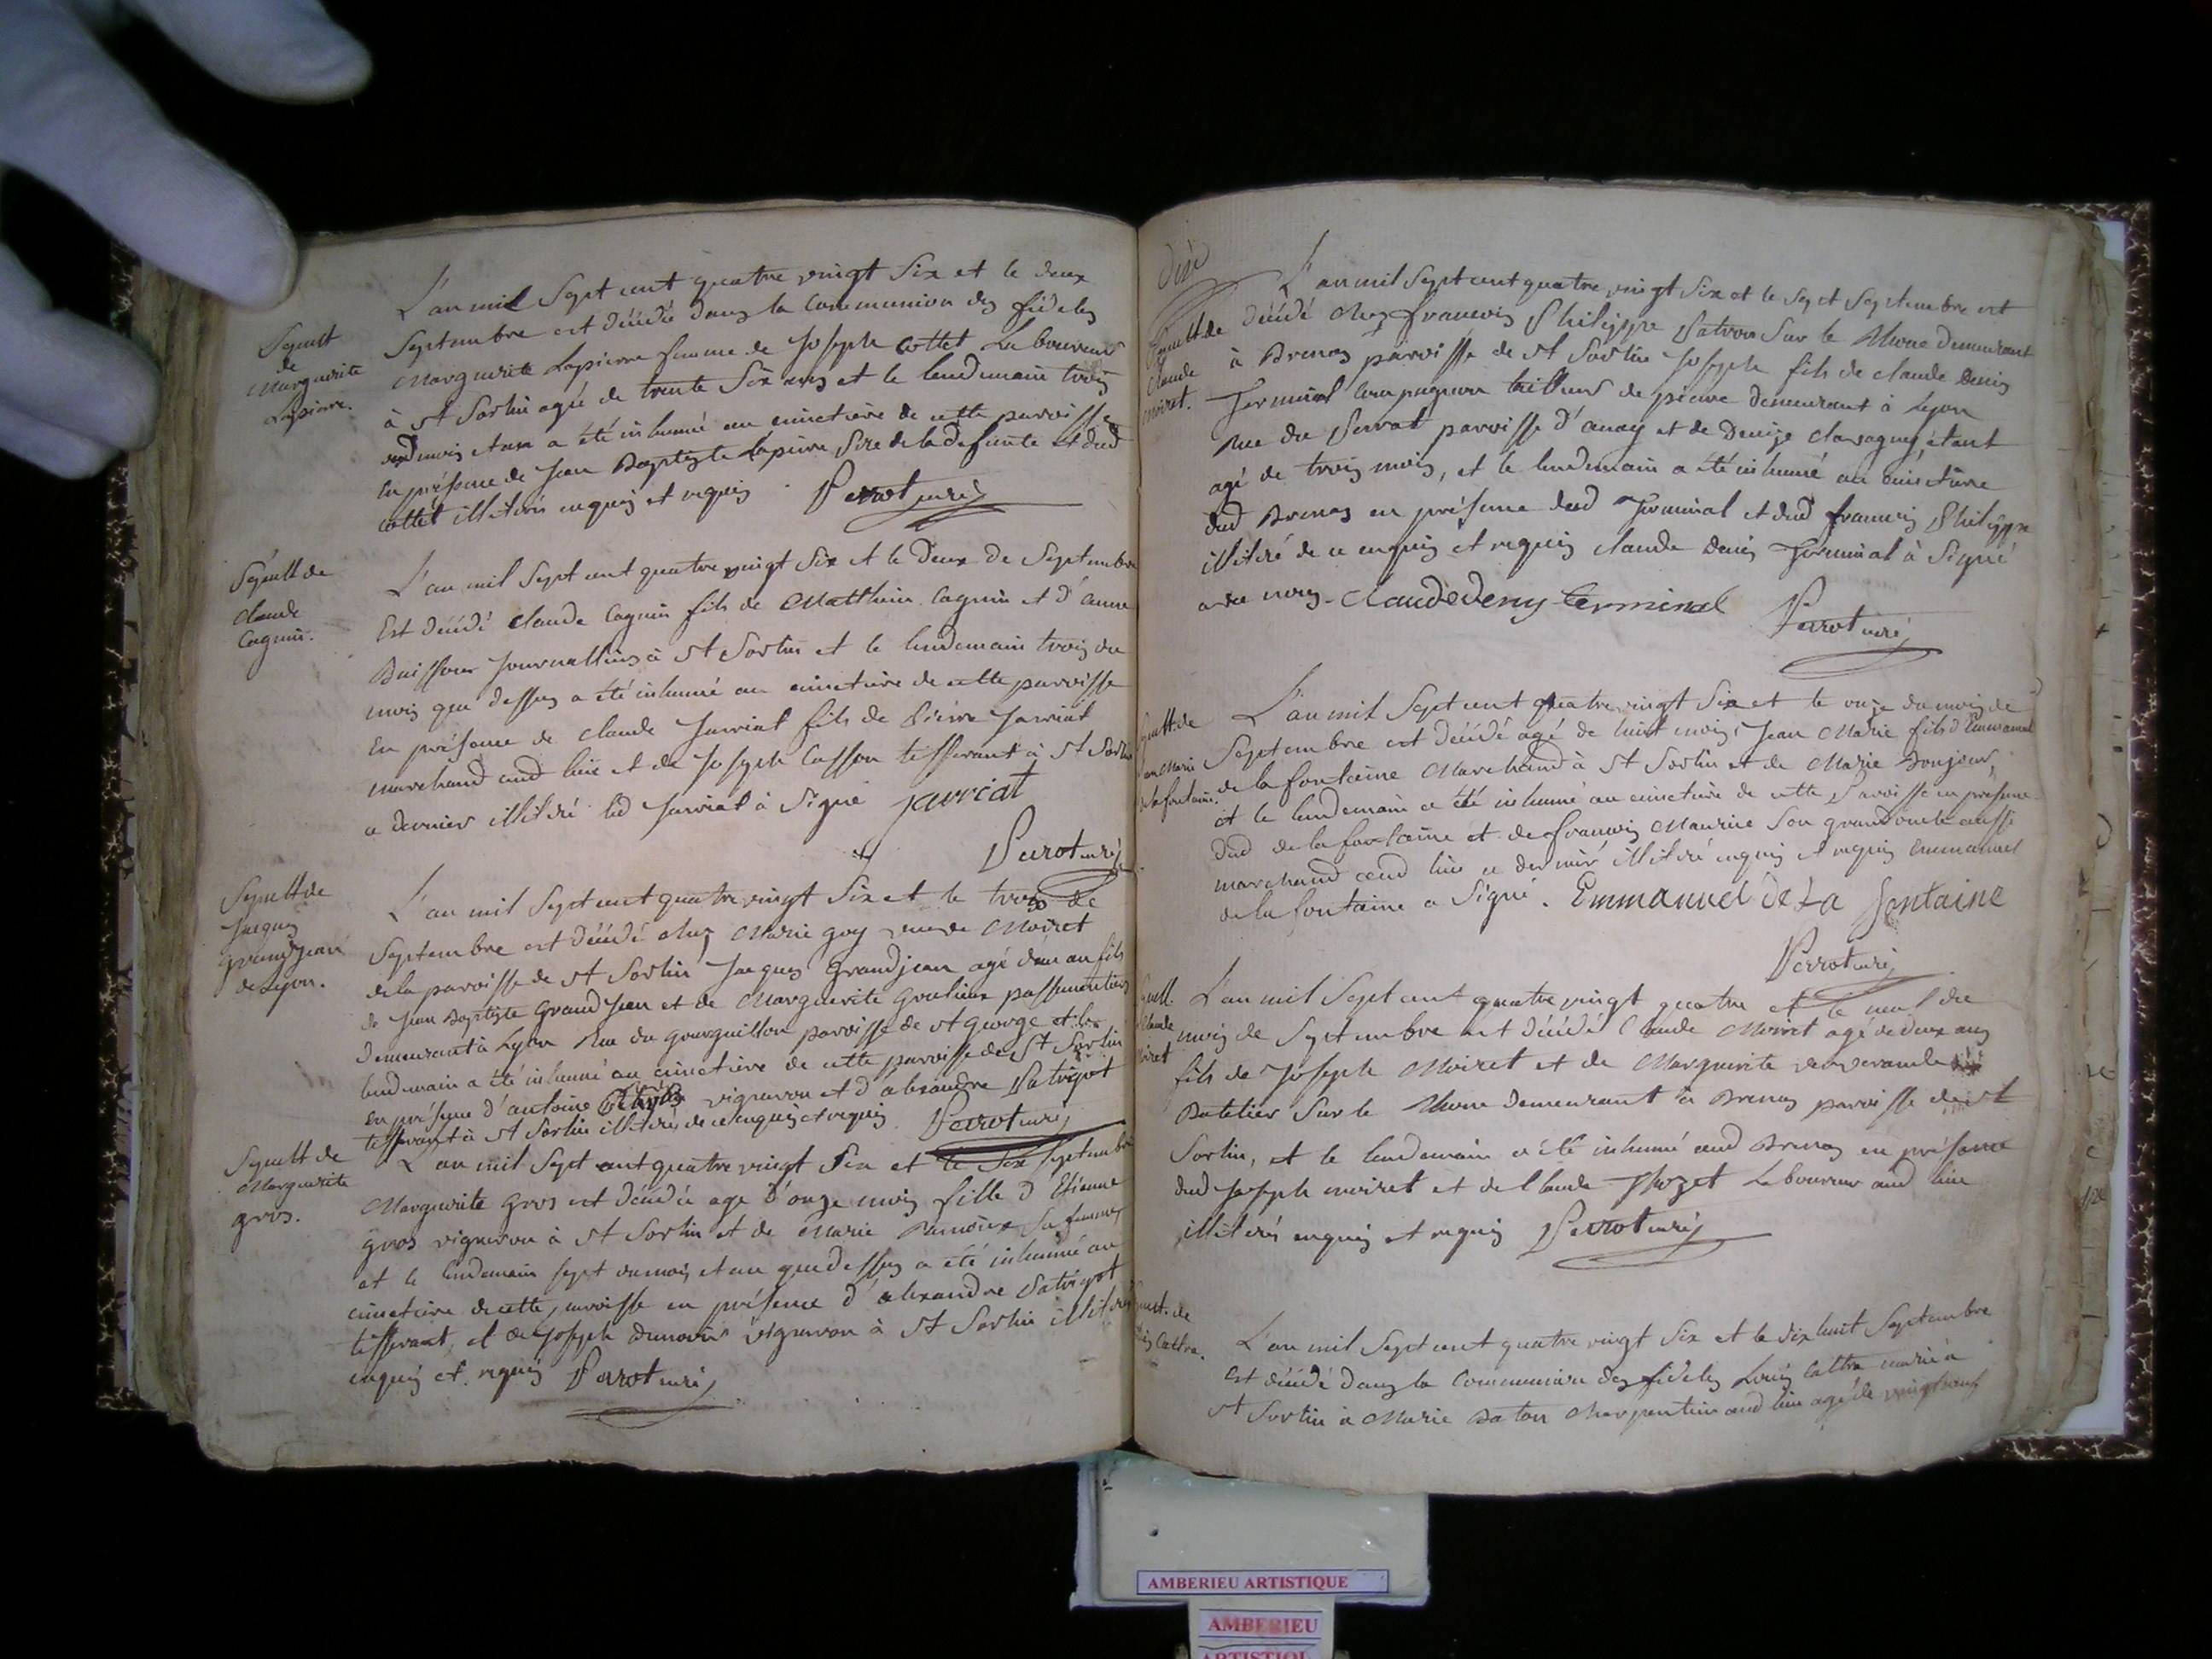 Sepult
de
Marguerite
Lapierre.
L'an mil Sept cent quatre vingt Six et le deux
Septembre est décédée dans la Communion des fideles
Marguerite Lapierre femme de Joseph Cottet Laboureur
à St Sorlin agée de trente Six ans et le lendemain trois
dud mois et an a été inhumé au cimetiere de cette paroisse
En présence de Jean Baptiste Lapierre Pere de la defunte et dud
Cottet illiterés enquis et requis Perrot curé
Sepult de
Claude
Cagnin.
L'an mil Sept cent quatre vingt Six et le Deux De Septembre
Est décédé Claude Cagnin fils de Matthieu Cagnin et d'anne
Buisson Journalliers à St Sorlin et le lendemain trois du
mois que dessus a été inhumé au cimetiere de cette paroisse
En présence de Claude Jarriat fils de Pierre Jarriat
marchand aud lieu et de Joseph Casson tisserant à St Sorlin
ce dernier illitéré led Jarriat à Signé jarriat
Perrot curé
Sepult de
Jacques
grandjean
de Lyon.
L'an mil Sept cent quatre vingt Six et le trois de
Septembre est décédé chez Marie goy veuve Moiret
de la paroisse de St Sorlin Jacques Grandjean agé d'un an fils
de Jean Baptiste Grand Jean et de Marguerite passementiers
Demeurant à Lyon Rue du gourguillon paroisse de st george et le
lendemain a été inhumé au cimetiere de cette paroisse de St Sorlin
En présence d'antoine vigneron et d'alexandre Patriget
tisserant à St Sorlin illiterés de ce enquis et requis Perrot curé
Sepult de
Marguerite
gros.
L'an mil Sept cent quatre vingt Six et le Six Septembre
Marguerite Gros est décédée age d'onze mois fille d'Etienne
gros vigneron à St Sorlin et de Marie Sa femme
et le lendemain sept du mois et an que dessus a été inhumé au
cimetiere de cette paroisse en présence d'alexandre Patriget
tisserant, et de Joseph vigneron à St Sorlin illiterés
enquis et requis Perrot curé
Sepult de
Claude
moiret.
L'an mil Sept cent quatre vingt Six et le Sept Septembre est
décédé chez francois Philippe Patron Sur le Rhone Demeurant
à Brenas paroisse de St Sorlin Joseph fils de Claude Denis
Terminal Compagnon tailleur de pierre demeurant à Lyon
Rue du paroisse d'anay et de Denize étant
agé de trois mois, et le lendemain a été inhumé au cimetiere
dud Brenas en présence dud Terminal et dud francois Philippe
illitéré de ce enquis et requis claude denis Terminal à Signé
avec nous. Claude deny terminal
Perrot curé
Sepult. de
Jean Marie
de la fontaine.
L'an mil Sept cent quatre vingt Six et le onze du mois de
Septembre est décédé agé de huit mois Jean Marie fils d'Emmanuel
de la fontaine Marchand à St Sorlin et de Marie Bonjour,
et le lendemain a été inhumé au cimetiere de cette Paroisse en presence
dud de la fontaine et de francois Maurice Son grand oncle aussi
marchand aud lieu ce dernier illitéré enquis et requis Emmanuel
de la fontaine a Signé. Emmanuel de La fontaine
Perrot curé
Sepult.
Claude
moiret
L'an mil Sept cent quatre vingt quatre et le neuf du
mois de Septembre est décédé Claude Moiret agé de deux ans
fils de Joseph Moiret et de Marguerite
Batelier Sur le Rhone Demeurant à Brenas paroisse de St
Sorlin, et le lendemain a été inhumé aud Brenas en présence
dud Joseph moiret et de Claude Laboureur aud lieu
illiterés enquis et requis Perrot curé
Sepult. de
Loüis Cattra.
L'an mil Sept cent quatre vingt Six et le dix huit Septembre
est décédé dans la Communion des fideles Loüis Cattra marié à
St Sorlin à Marie Baton Charpentier aud lieu agé de
AMBERIEU ARTISTIQUE
AMBERIEU
ARTISTIQUE